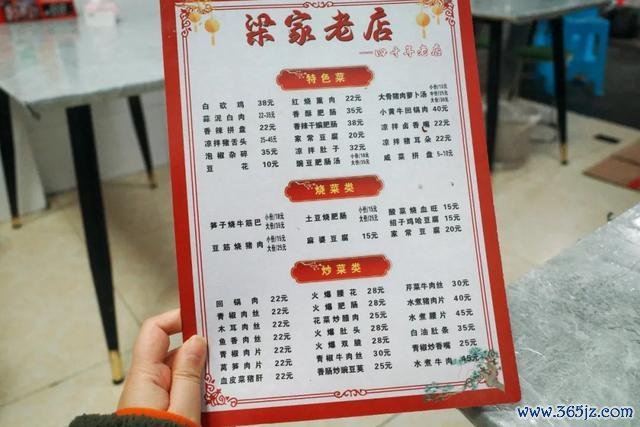 梁家老店
—四十年老店
特色菜
白砍鸡 38元 红烧熏肉 22元 大骨猪肉萝卜汤 小份/13元 中份/25元 大份/38元
蒜泥白肉 22-35元 香酥肥肠 35元 小黄牛回锅肉 40元
香辣拼盘 22元 香辣干煸肥肠 38元 凉拌卤香嘴 22元
凉拌猪舌头 25-45元 家常豆腐 20元 凉拌猪耳朵 22元
泡椒杂碎 35元 凉拌肚子 32元 咸菜拼盘 5-10元
豆花 10元 豌豆肥肠汤 小份/18元 大份/35元
烧菜类
笋子烧牛筋巴 小份/18元 大份/35元 土豆烧肥肠 小份/15元 大份/25元 酸菜烧血旺 15元
绍子鸡哈豆腐 15元
豆筋烧猪肉 小份/15元 大份/25元 麻婆豆腐 15元 家常豆腐 20元
炒菜类
回锅肉 22元 火爆腰花 28元 芹菜牛肉丝 30元
青椒肉丝 22元 火爆肥肠 28元 水煮猪肉片 40元
木耳肉丝 22元 花菜炒腊肉 25元 水煮腰片 45元
鱼香肉丝 22元 火爆肚头 28元 白油肚条 35元
青椒肉片 22元 火爆双脆 28元 青椒炒香嘴 25元
莴笋肉片 22元 青椒牛肉丝 30元 水煮牛肉 45元
血皮菜猪肝 22元 香肠炒豌豆荚 25元
www.365jz.com